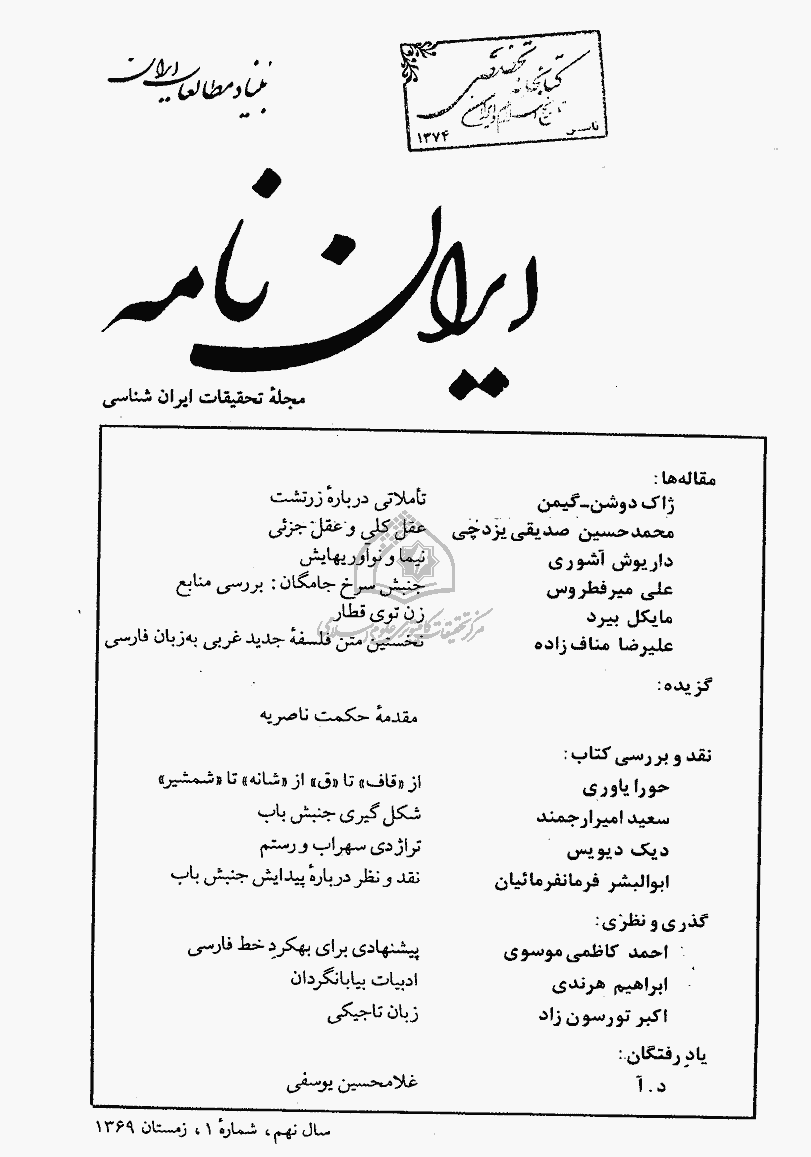 بنیاد مطالعات ایران
کتابخانه تخصصی
تاریخ اسلام و ایران
۱۳۷۴
ایران نامه
مجلهٔ تحقیقات ایران شناسی
مقاله‌ها:
ژاک دوشن-گیمن تأملاتی دربارهٔ زرتشت
محمدحسین صدیقی یزدچی عقل کلی و عقل جزئی
داریوش آشوری نیما و نوآوریهایش
علی میرفطروس جنبش سرخ جامگان: بررسی منابع
مایکل بیرد زن توی قطار
علیرضا مناف زاده نخستین متن فلسفهٔ جدید غربی به‌زبان فارسی
مرکز تحقیقات کامپیوتری علوم اسلامی
گزیده:
مقدمهٔ حکمت ناصریه
نقد و بررسی کتاب:
حورا یاوری از «قاف» تا «ق» از «شانه» تا «شمشیر»
سعید امیرارجمند شکل گیری جنبش باب
دیک دیویس تراژدی سهراب و رستم
ابوالبشر فرمانفرمائیان نقد و نظر دربارهٔ پیدایش جنبش باب
گذری و نظری:
احمد کاظمی موسوی پیشنهادی برای بهکردِ خط فارسی
ابراهیم هرندی ادبیات بیابانگردان
اکبر تورسون زاد زبان تاجیکی
یادِ رفتگان:
د.آ غلامحسین یوسفی
سال نهم، شمارهٔ ۱، زمستان ۱۳۶۹